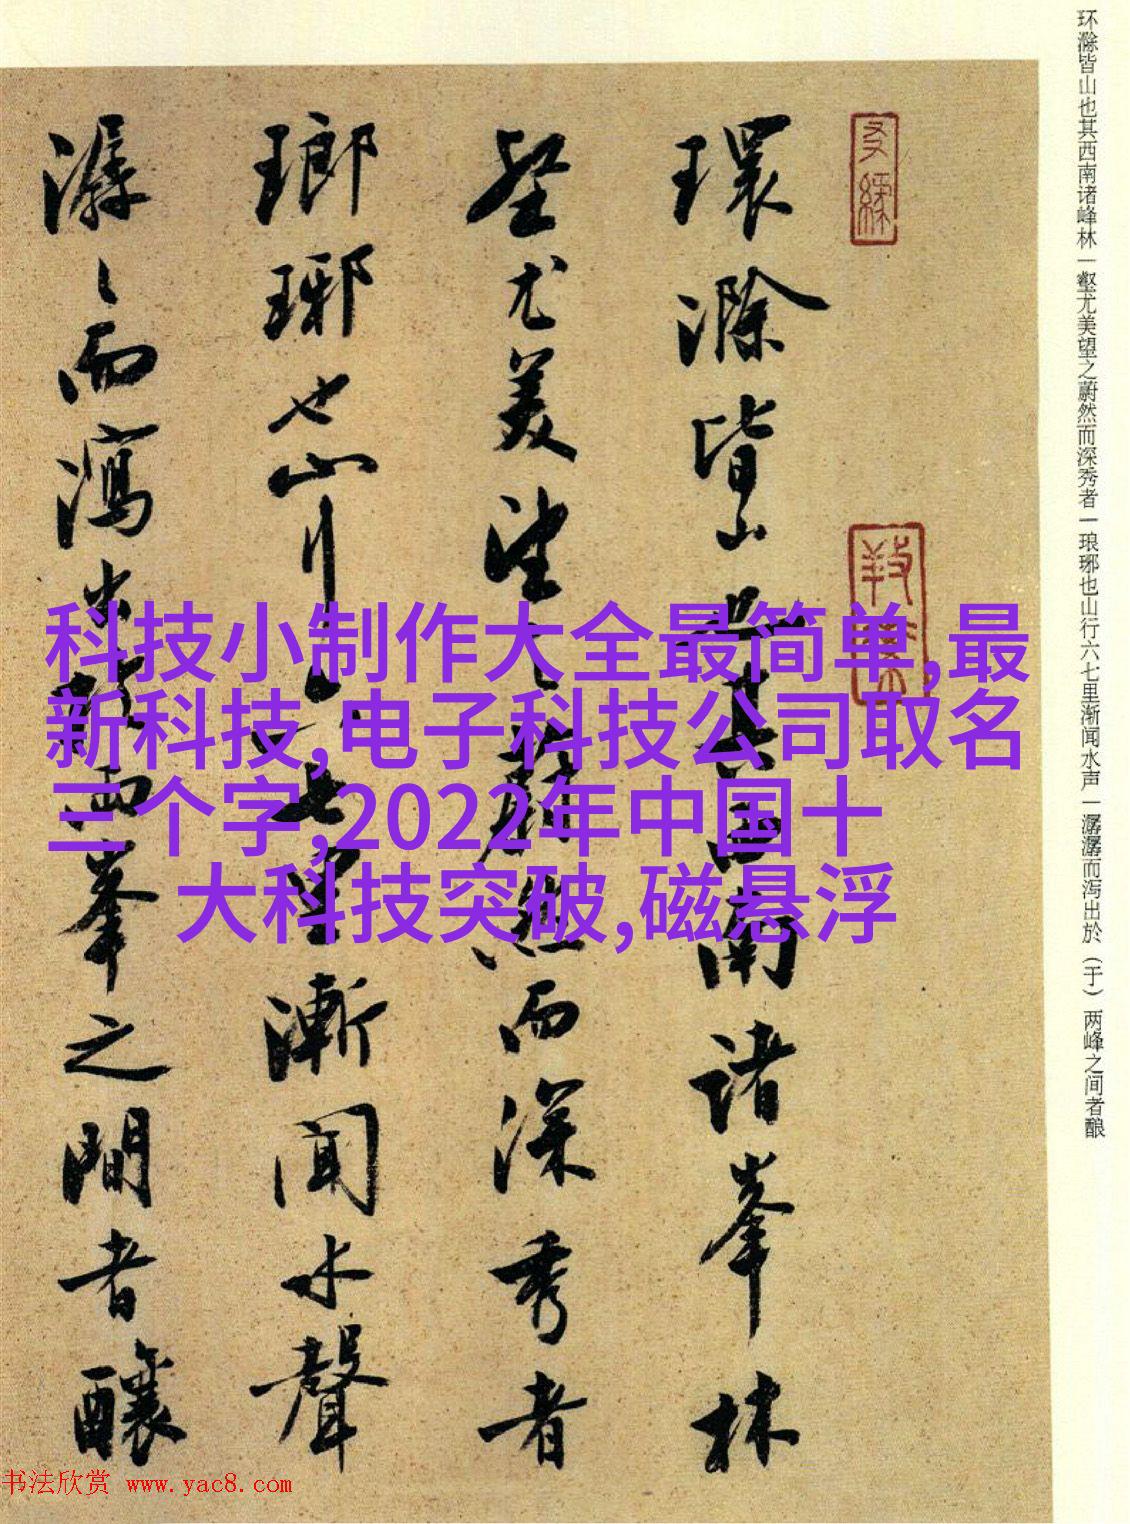 环滁皆山也其西南诸峰林一壑尤美望之蔚然而深秀者一琅琊也山行六七里渐闻水声一潺潺而泻出於（于）两峰之间者酿
環滁皆山也其西南諸峯林
壑尤美望之蔚然而深秀者
瑯琊也山行六七里漸聞水聲
潺々而瀉出於兩峯之間者釀
科技小制作大全最简单,最
新科技,电子科技公司取名
三个字,2022年中国十
大科技突破,磁悬浮
书法欣赏 www.yac8.com